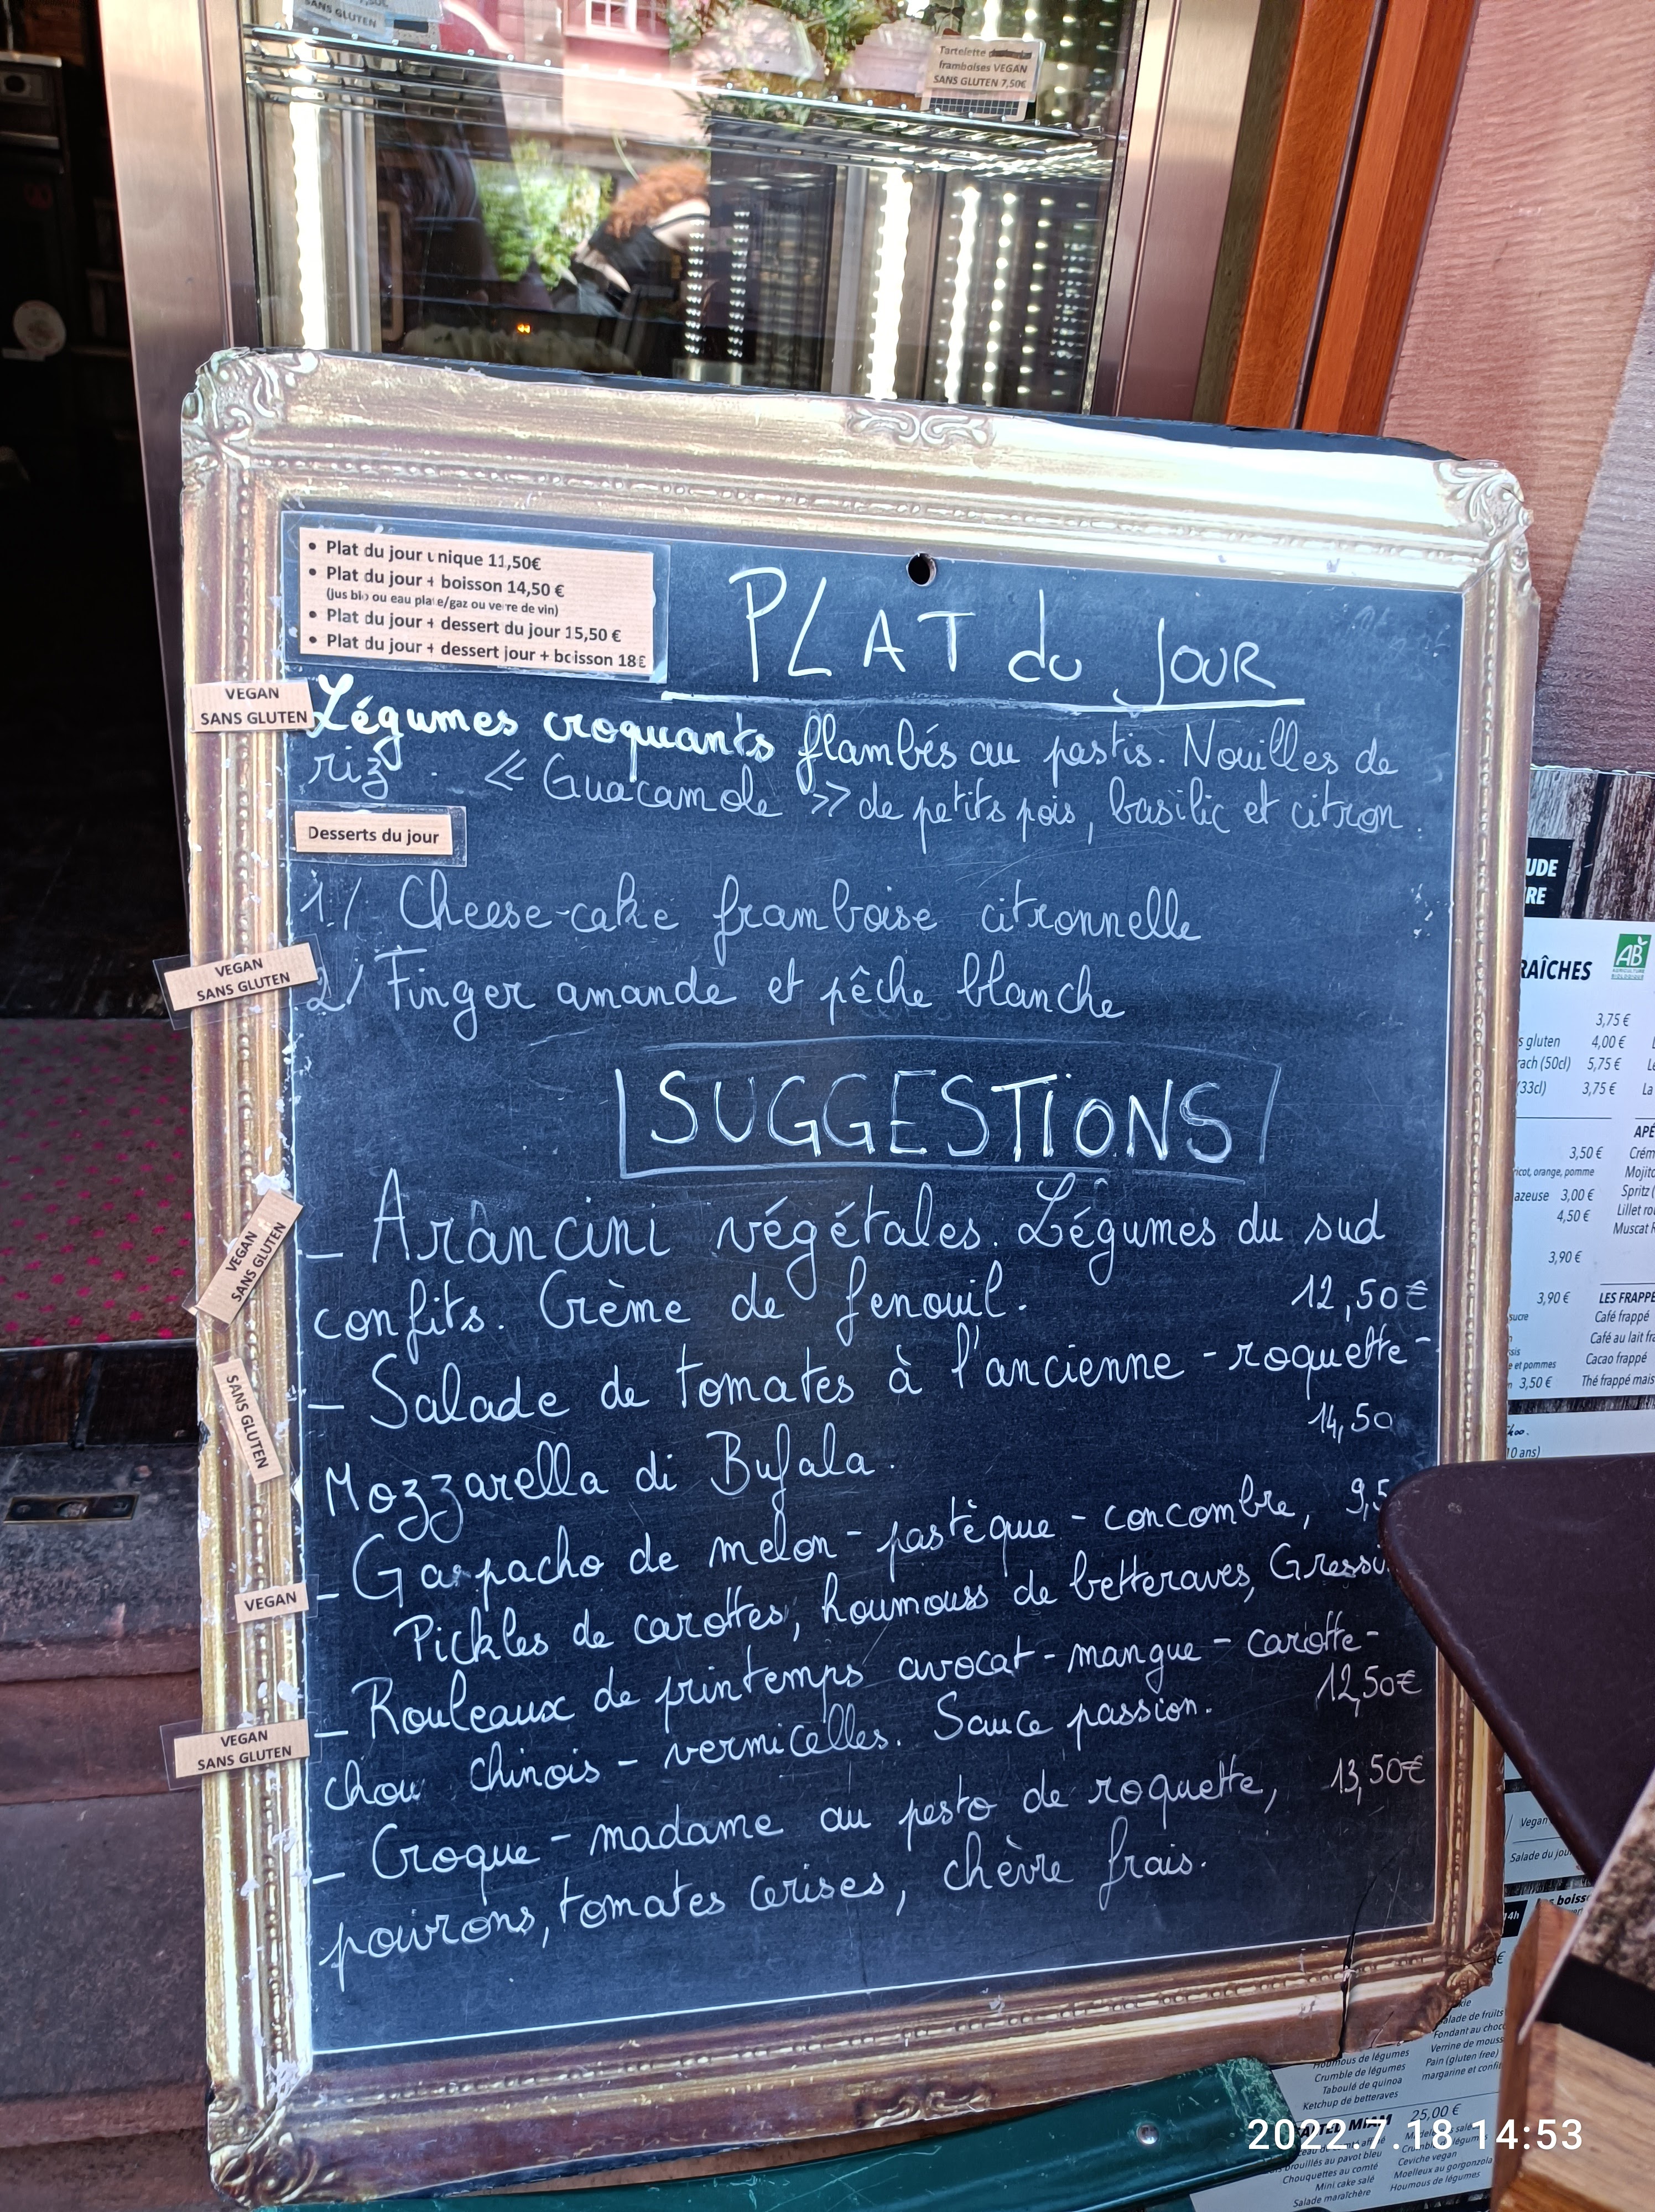 SANS GLUTEN
Tartelette
framboises VEGAN
SANS GLUTEN 7,50€
• Plat du jour unique 11,50€
• Plat du jour + boisson 14,50 €
(jus bio ou eau plate/gaz ou verre de vin)
• Plat du jour + dessert du jour 15,50 €
• Plat du jour + dessert jour + boisson 18€
PLAT du JOUR
VEGAN
SANS GLUTEN
Légumes croquants flambés au pastis. Nouilles de
riz. « Guacamole » de petits pois, basilic et citron.
Desserts du jour
1/ Cheese-cake framboise citronnelle
VEGAN
SANS GLUTEN
2/ Finger amande et pêche blanche
SUGGESTIONS
VEGAN
SANS GLUTEN
– Arancini végétales. Légumes du sud
confits. Crème de fenouil. 12,50€
SANS GLUTEN
– Salade de tomates à l'ancienne - roquette -
Mozzarella di Bufala. 14,50
VEGAN
– Gaspacho de melon - pastèque - concombre, 9,5
Pickles de carottes, houmouss de betteraves, Gressi
VEGAN
SANS GLUTEN
– Rouleaux de printemps avocat - mangue - carotte -
chou chinois - vermicelles. Sauce passion. 12,50€
– Croque-madame au pesto de roquette, 13,50€
poivrons, tomates cerises, chèvre frais.
UDE
RE
RAÎCHES
AB
3,75 €
s gluten 4,00 €
rach (50cl) 5,75 €
(33cl) 3,75 € La
APÉ
3,50 € Crém
ricot, orange, pomme Mojito
azeuse 3,00 € Spritz (
4,50 € Lillet ro
Muscat
3,90 €
3,90 € LES FRAPPÉ
sucre Café frappé
Café au lait fra
e et pommes Cacao frappé
3,50 € Thé frappé mais
10 ans)
Vegan
Salade du jou
boiss
14h
alade de fruits
Fondant au choc
Verrine de mouss
Pain (gluten free)
margarine et confit
Houmous de légumes
Crumble de légumes
Taboulé de quinoa
Ketchup de betteraves
MIAM 25,00 €
brouillés au pavot bleu
Chouquettes au comté
Mini cake salé
Salade maraîchère
Ceviche vegan
Moelleux au gorgonzola
Houmous de légumes
2022.7.18 14:53